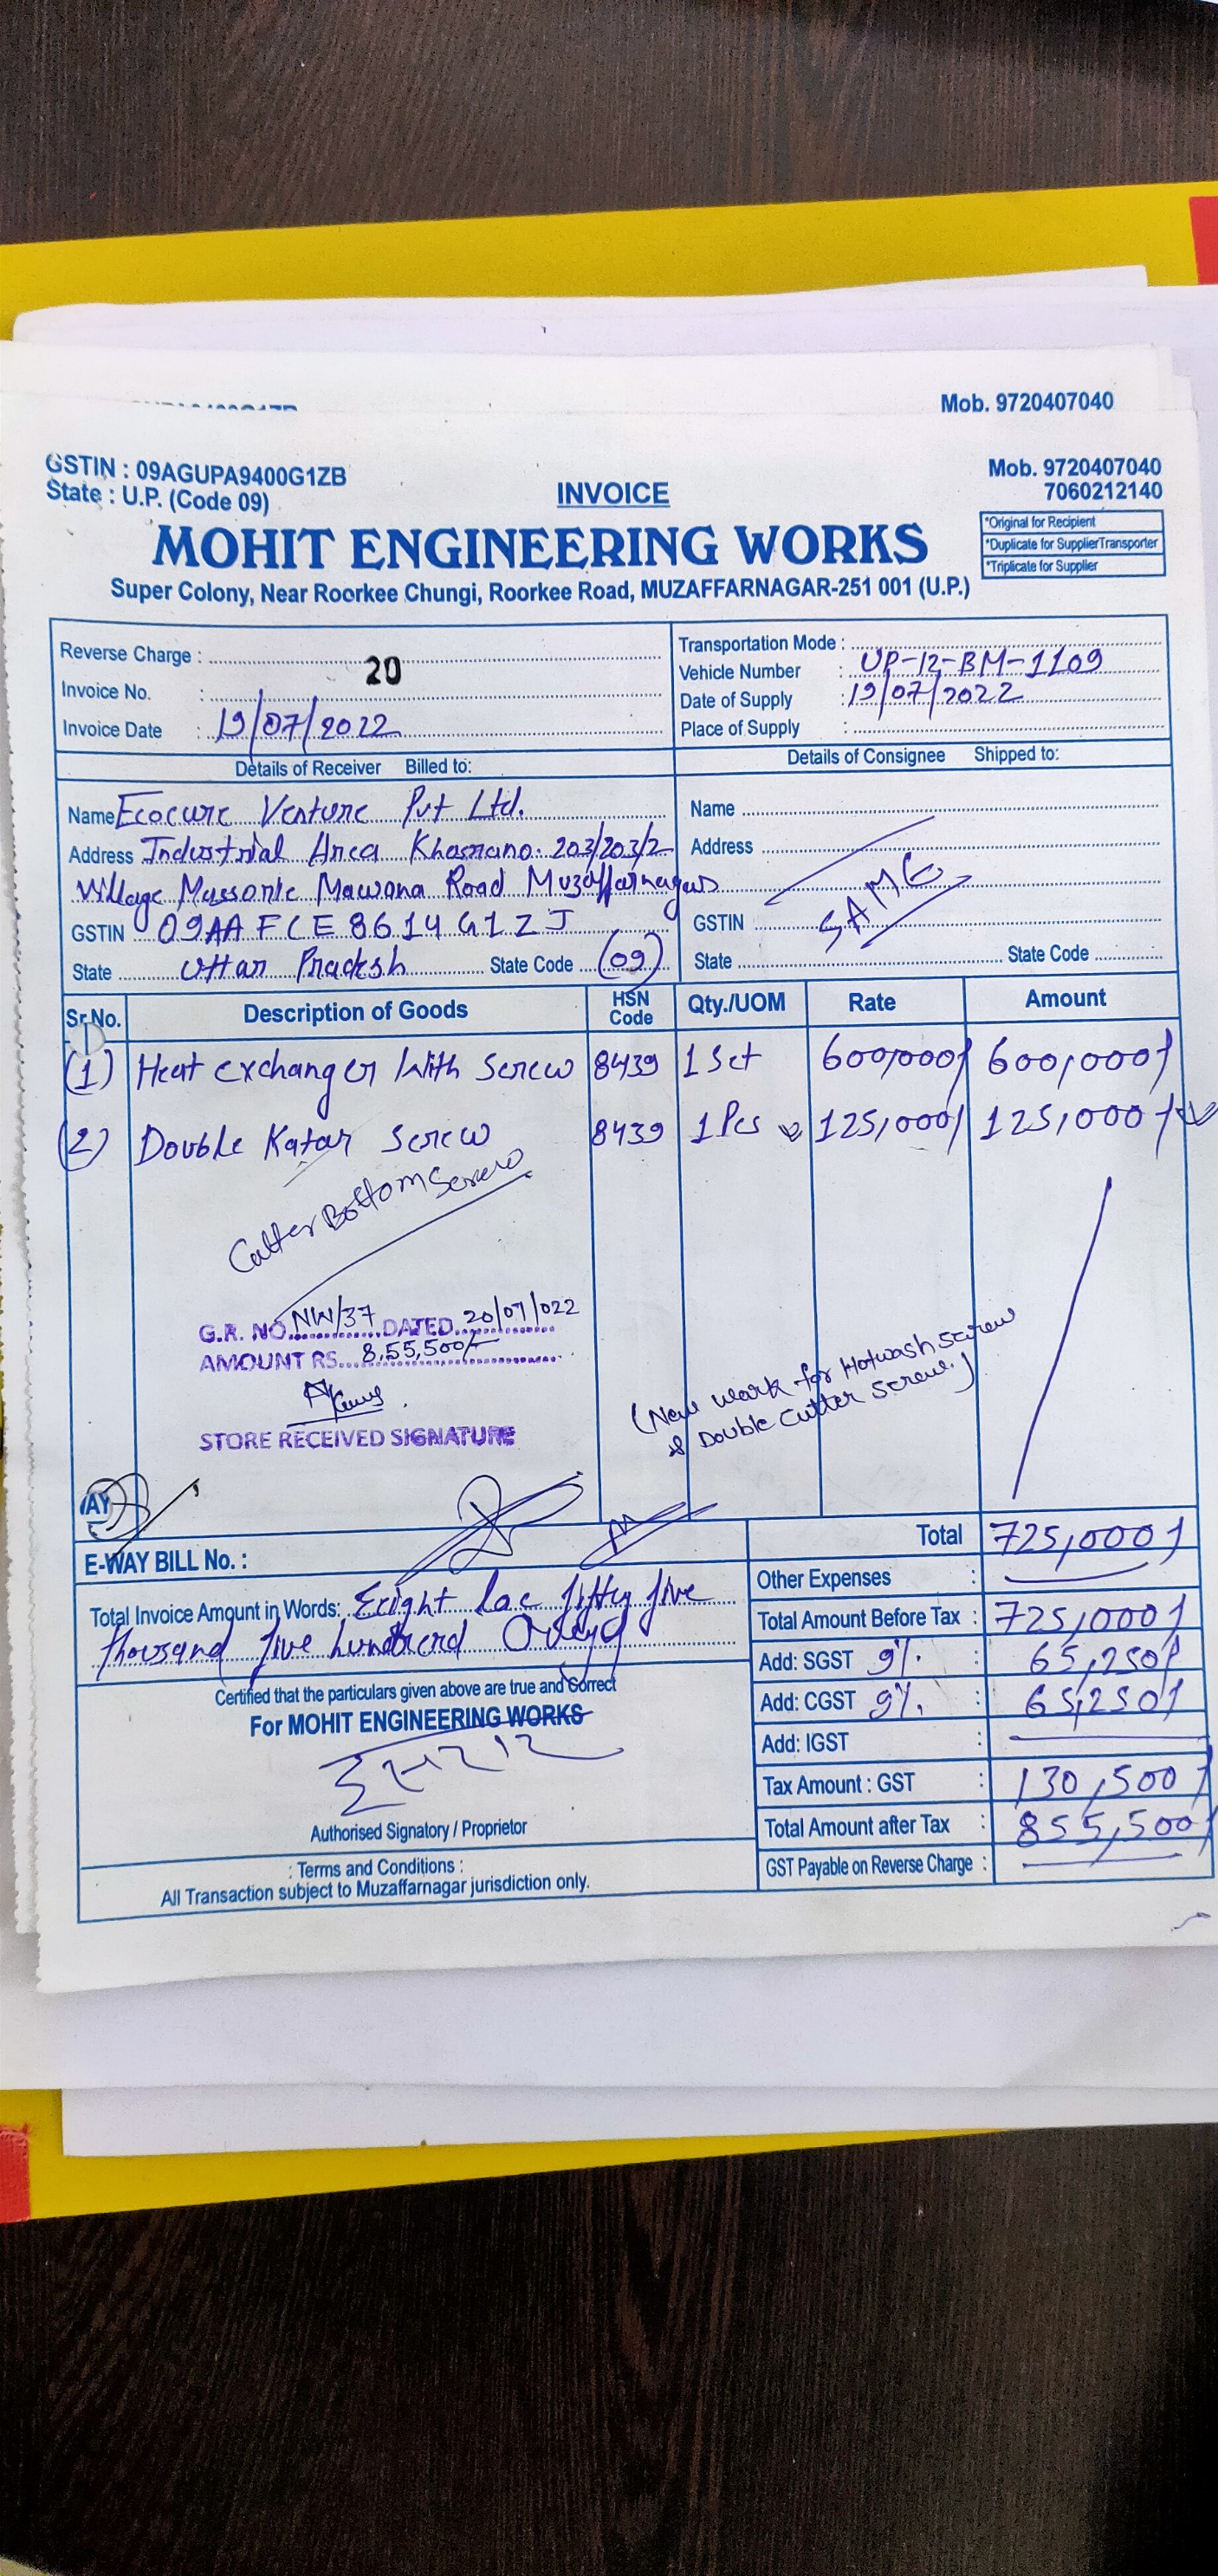 Mob. 9720407040
GSTIN : 09AGUPA9400G1ZB
State : U.P. (Code 09)
INVOICE
Mob. 9720407040
7060212140
MOHIT ENGINEERING WORKS
*Original for Recipient
*Duplicate for SupplierTransporter
*Triplicate for Supplier
Super Colony, Near Roorkee Chungi, Roorkee Road, MUZAFFARNAGAR-251 001 (U.P.)
Reverse Charge :
Invoice No. : 20
Invoice Date : 19/07/2022
Transportation Mode :
Vehicle Number : UP-12-BM-1109
Date of Supply : 19/07/2022
Place of Supply :
Details of Receiver Billed to:
Details of Consignee Shipped to:
Name Ecocure Venture Pvt Ltd.
Address Industrial Area Khasrano. 203/203/2
Village Massorie Mawana Road Muzaffarnagar
GSTIN 09AAFCE8614G1ZJ
State Uttar Pradesh State Code (09)
Name
Address
SAME
GSTIN
State State Code
Sr.No. Description of Goods HSN Code Qty./UOM Rate Amount
(1) Heat exchanger With Screw 8439 1 Set 600,000/ 600,000/
(2) Double Katar Screw 8439 1 Pcs 125,000/ 125,000/
Cutter Bottom Screw
G.R. NO. NW/37 DATED. 20/07/022
AMOUNT RS. 8,55,500/-
STORE RECEIVED SIGNATURE
(New work for Hotwash Screw
& Double Cutter Screw.)
E-WAY BILL No. :
Total Invoice Amount in Words: Eright lac fifty five
thousand five hundrerd Only
Certified that the particulars given above are true and Correct
For MOHIT ENGINEERING WORKS
Authorised Signatory / Proprietor
: Terms and Conditions :
All Transaction subject to Muzaffarnagar jurisdiction only.
Total 725,000/
Other Expenses :
Total Amount Before Tax : 725,000/
Add: SGST 9%. : 65,250/
Add: CGST 9%. : 65,250/
Add: IGST :
Tax Amount : GST : 130,500/
Total Amount after Tax : 855,500/
GST Payable on Reverse Charge :